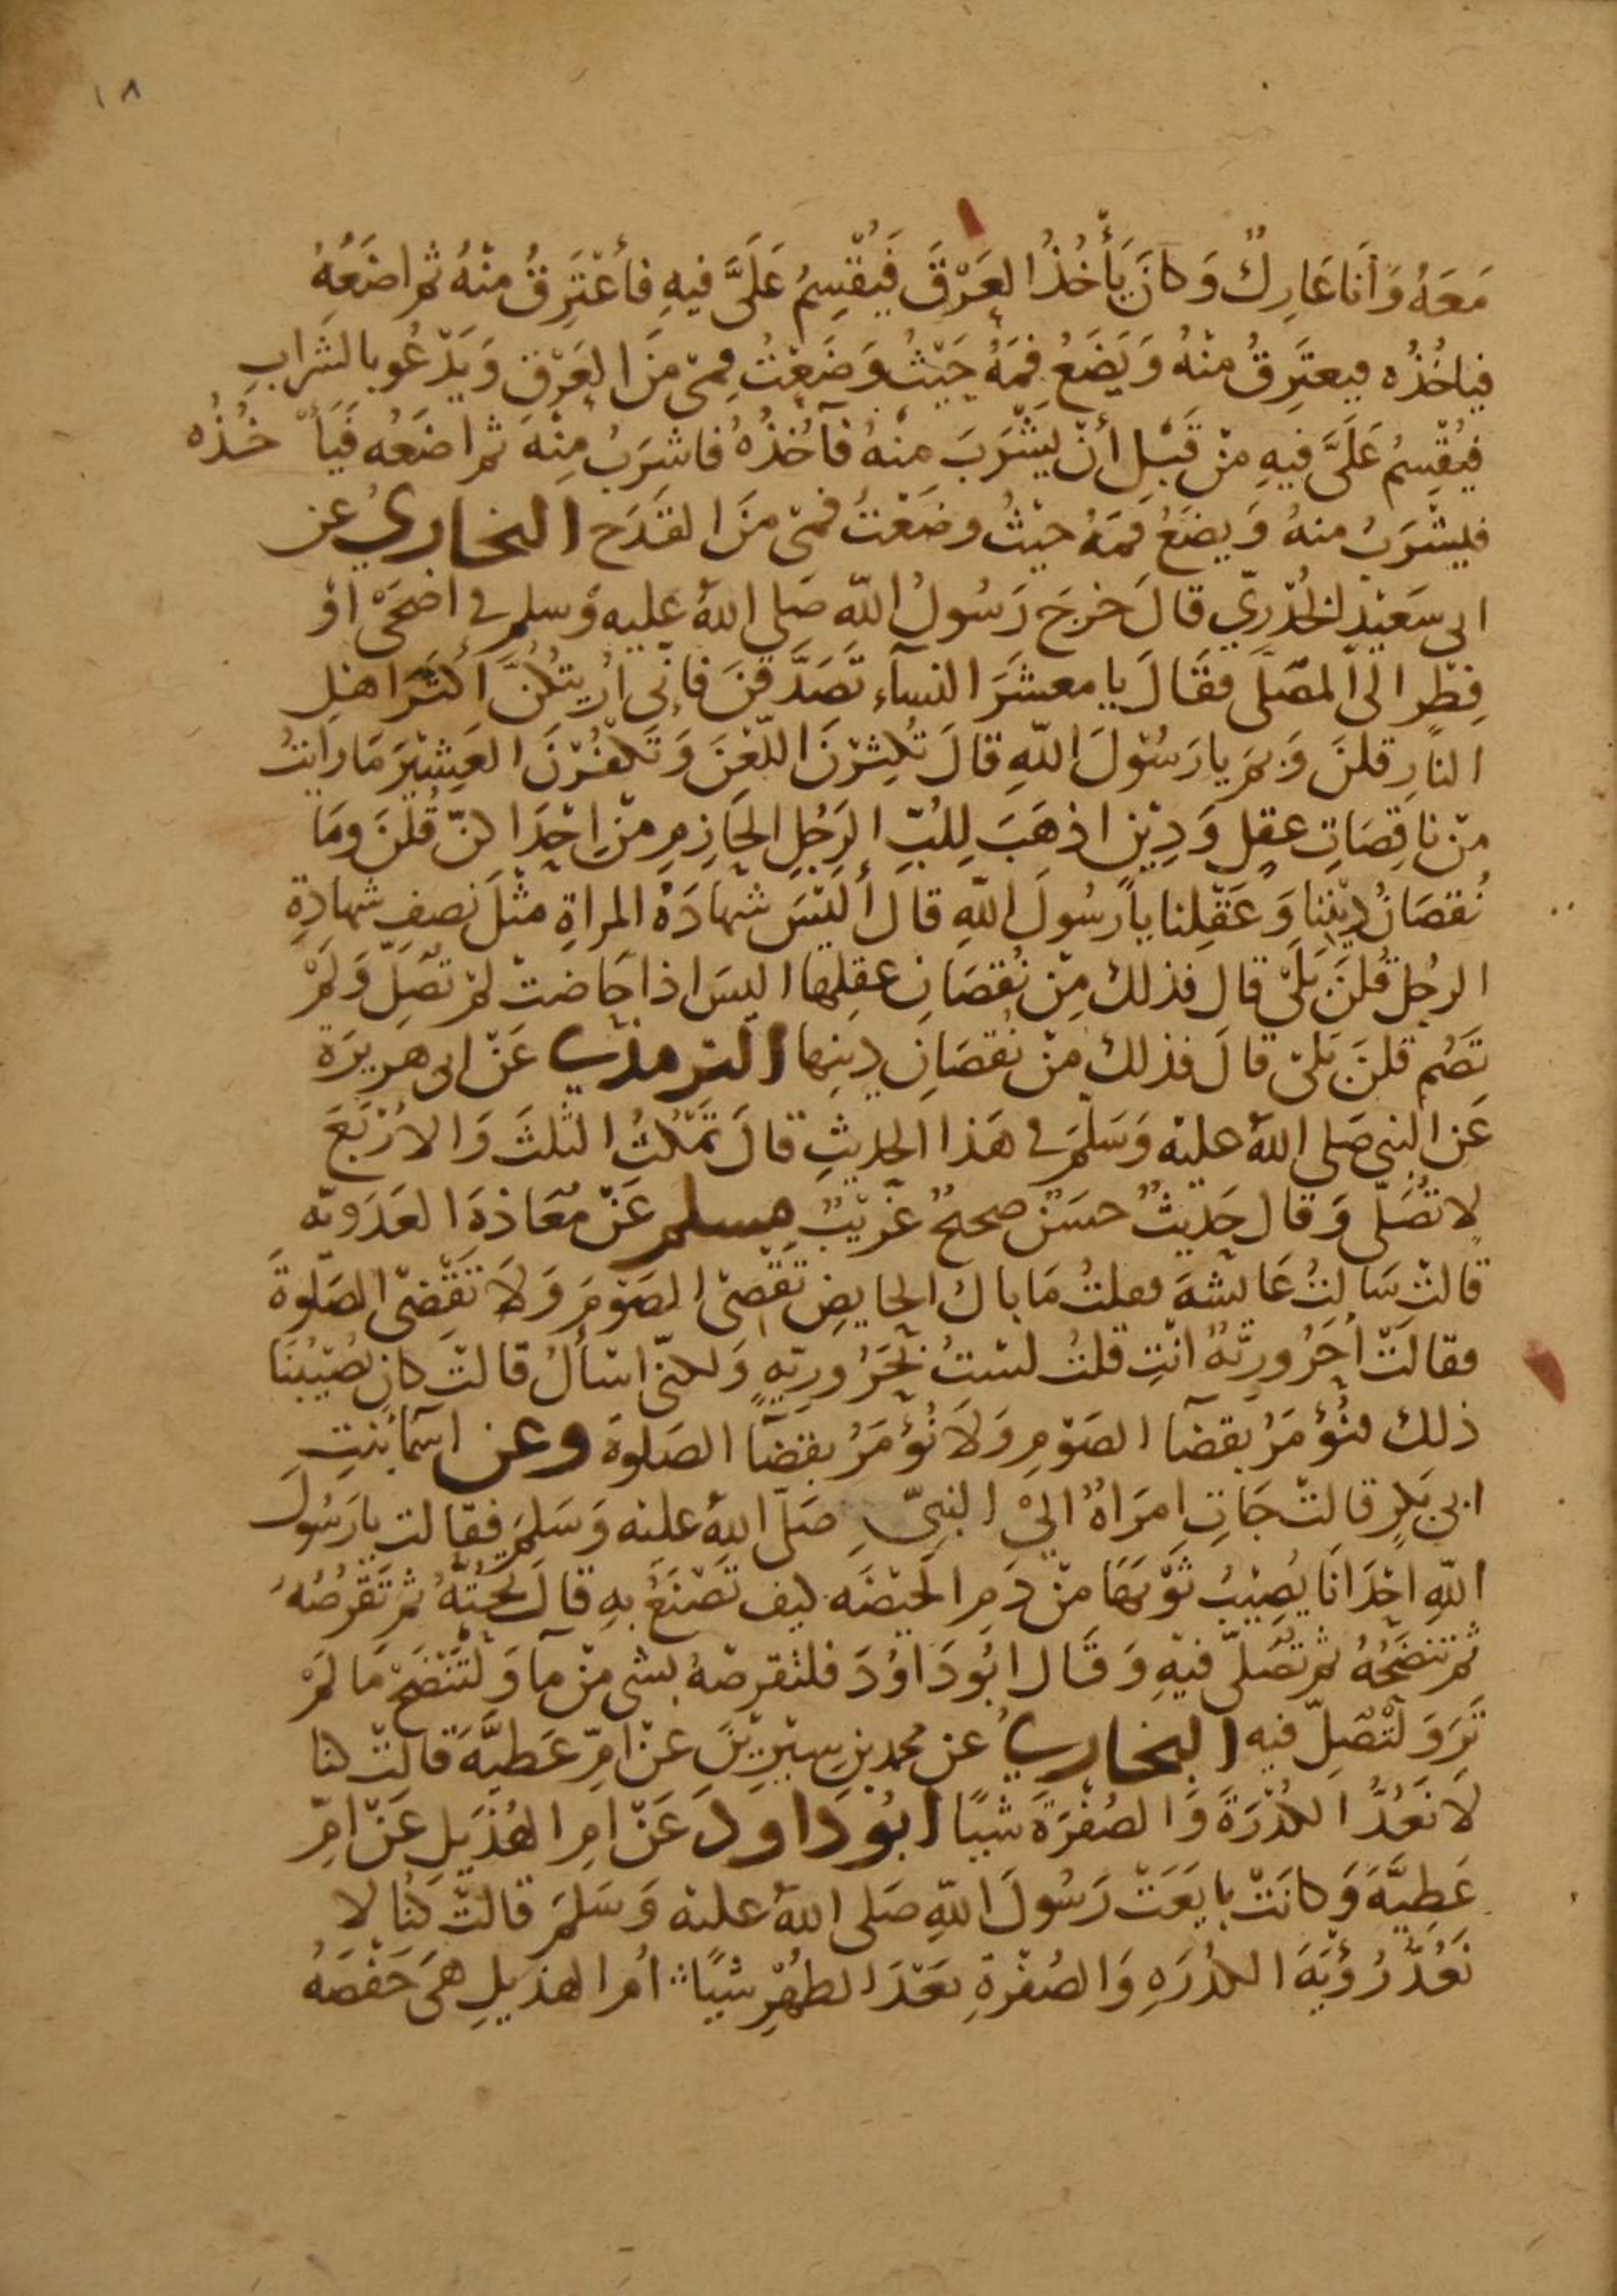 ١٨
مَعَهُ وَأَنَا عَارِكٌ وَكَانَ يَأْخُذُ العَرْقَ فَيُقْسِمُ عَلَيَّ فيهِ فأَعْتَرِقُ مِنْهُ ثم اضَعُهُ
فياخُذُه فيعتَرِقُ مِنْهُ وَيَضَعُ فَمَهُ حَيْثُ وَضَعْتُ فَمِي مِنَ العَرْقِ وَيَدْعُو بالشَرابِ
فيُقْسِمُ عَلَيَّ فِيهِ مِنْ قَبْلِ أَنْ يَشْرَبَ مِنْهُ فآخُذُهُ فاشرَبُ مِنْهُ ثم اضَعُه فَيَأْخُذُه
فيشْرَبُ منهُ وَيضَعُ فَمَهُ حيْثُ وضَعْتُ فمِي مِنَ القَدَحِ البخاريُ عن
ابى سَعيْدٍ الخُدْرِيّ قالَ خرجَ رَسُولُ اللّه صَلى اللهُ عليه وَسلم في اضحَىْ اوْ
فِطْرٍ الى المصَلَّى فقَالَ يا معشَرَ النساء تَصَدَّقنَ فإنّى أُريتُكُنَّ أكثَرَ اهْلِ
النارِ قلنَ وَبِمَ يا رَسُوْلَ اللّهِ قالَ تُكْثِرْنَ اللّعْنَ وَتَكْفُرْنَ العَشِيْرَ مَا رَايتُ
مِنْ ناقِصَاتِ عقلٍ وَدِيْنٍ اذهَبَ لِلُبِّ الرَجُلِ الحَازِمِ مِنْ اِحْدَاكنّ قُلْنَ ومَا
نُقصَانُ دِيْنِنا وَعَقْلِنا يا رسُولَ اللّهِ قالَ أَليْسَ شهادَةُ المراةِ مثْلَ نصفِ شهادةِ
الرجُل قُلنَ بَلَىْ قال فذلك مِنْ نُقصَانِ عقلِها اليسَ اذا حَاضتْ لمْ تصَلِّ وَلَمْ
تَصُم قلنَ بَلَىْ قالَ فذلك مِنْ نُقصَانِ دينِها الترمذي عَنْ ابى هريرَة
عَنِ النبي صَلى اللهُ عليْه وَسَلَّمَ في هَذا الحديثِ قالَ تَمْكُثُ الثلثَ وَالارْبَعَ
لا تُصَلّى وَقال حَديْثٌ حسَنٌ صحيحٌ غَريْبٌ مسلم عَنْ مُعَاذةَ العَدَويّه
قالتْ سَالتُ عَايشَه فقلتُ مَا بال الحايضِ تَقْضى الصَوْمَ وَلَا تَقْضى الصَلوةَ
فقالَتْ أَحَرُورِيَّةٌ انْتِ قلتُ لسْتُ بِحَرُورِيّهٍ ولكنّى اسْأَلُ قالتْ كانَ يُصِيْبُنَا
ذلك فنُؤْمَرُ بقضآ الصَوْمِ وَلَا نُؤْمَرُ بقضآ الصَلوة وعن اسمآ بنتِ
ابى بَكرٍ قالتْ جَاتِ امرَاةٌ اليْ النبيِّ صَلّى اللهُ علىْه وَسَلمَ فقالت يا رَسُولَ
اللّهِ اِحْدَانا يُصِيْبُ ثَوْبَهَا مِنْ دَمِ الحَيْضَه كيف تَصْنَعُ بهِ قالَ تَحُتُّهُ ثم تَقْرُصُهُ
ثم تنضَحُهُ ثم تصَلّى فيْهِ وَقَال ابُو دَاوُدَ فلتقرصْهُ بشى مِنْ مآ وَلْتَنْضَحْ مَا لَمْ
تَرَ وَلْتُصَلِّ فيه البخاريُ عن محمد بن سِيْرِيْنَ عَنْ امِّ عَطِيَّةَ قالَتْ كنا
لَا نَعُدُّ الكُدْرَةَ وَالصُفْرَةَ شيًا ابُو دَاود عَنْ امِ الهُذَيْلِ عَنْ امِّ
عَطِيَّةَ وَكانَتْ بايَعَتْ رَسُولَ اللّهِ صَلى اللهُ علىْه وَسَلمَ قالتْ كُنا لا
نَعُدُّ رُؤْيَةَ الكُدْرَهِ وَالصُفْرَةِ بَعْدَ الطهْرِ شيًا امُ الهذيلِ هيَ حَفْصَهُ